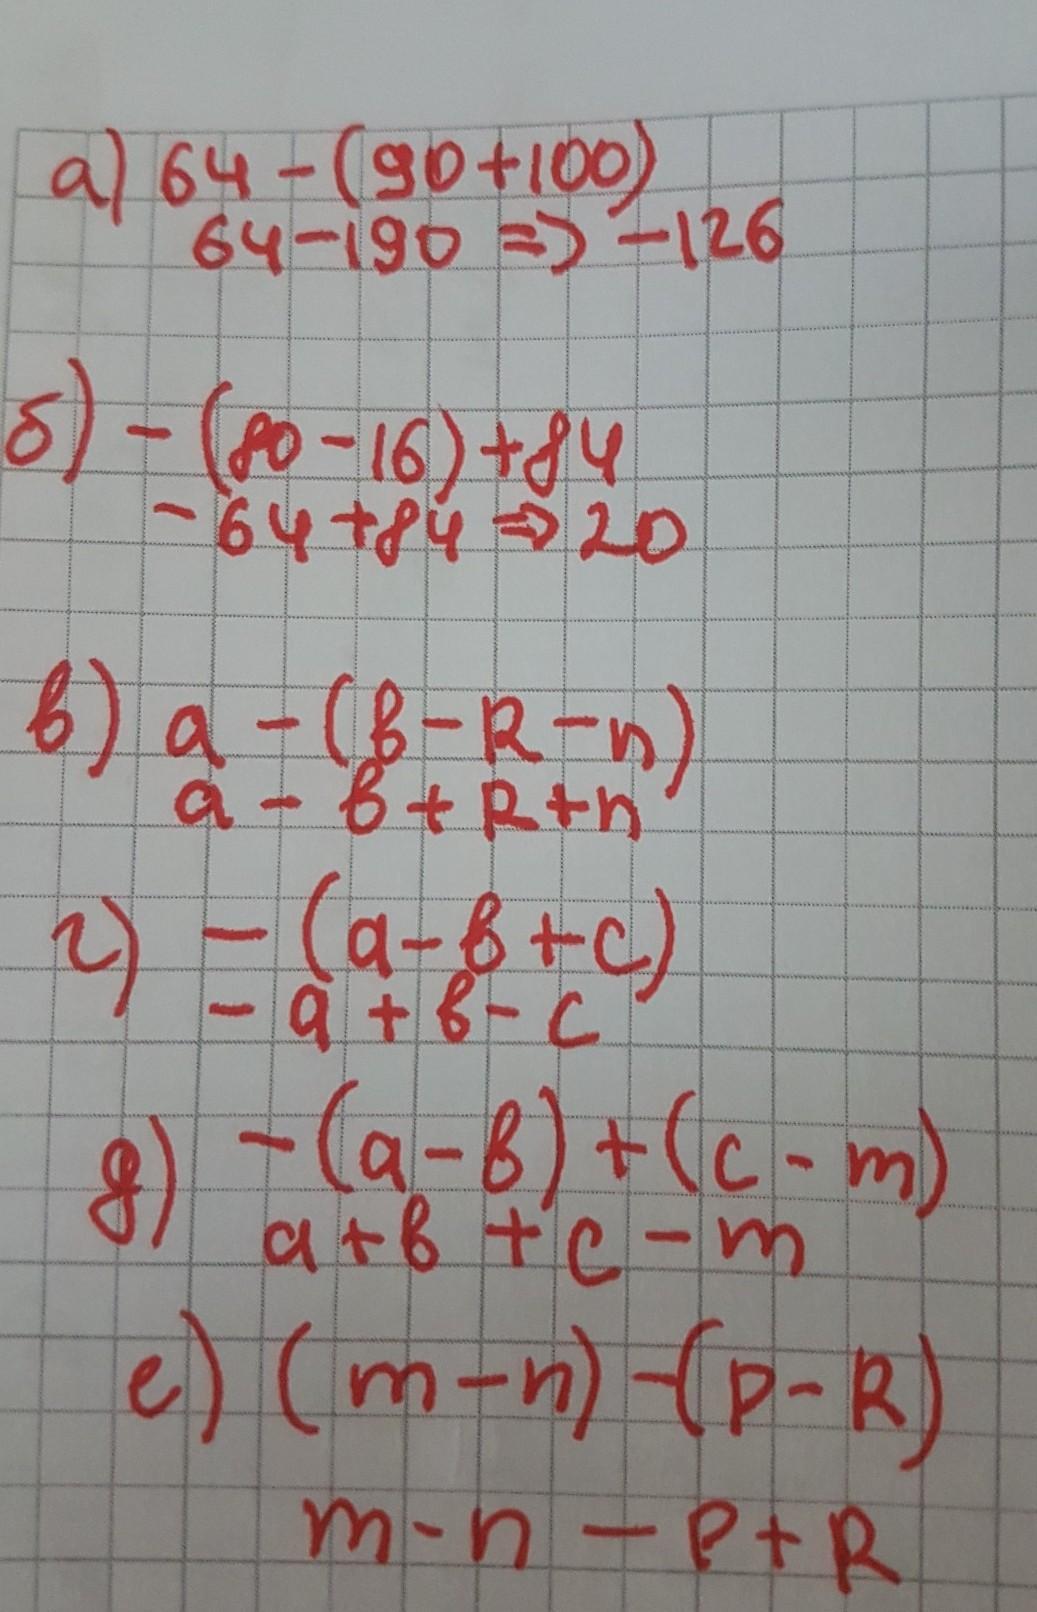 а) 64 - (90+100)
64-190 => -126
б) - (80-16)+84
-64+84 => 20
в) а - (в - R - n)
а - в + R + n
г) - (а - в + с)
- а + в - с
д) - (а - в) + (с - m)
а + в + с - m
е) (m - n) - (p - R)
m - n - p + R